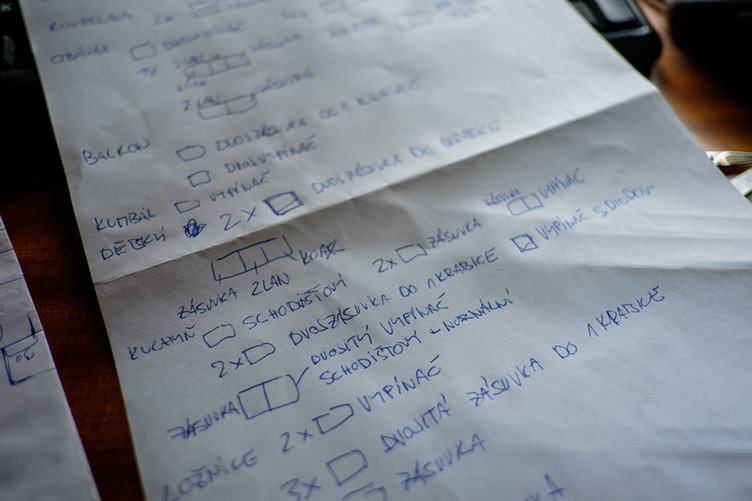 KOUPELNA 2x
OBÝVÁK DVOJVYPÍNAČ
TV 2 LAN ZÁSUVKA
2 LAN ZÁSUVKA
BALKON DVOJZÁSUVKA DO 1 KRABICE
DVOJVYPÍNAČ
KUMBÁL VYPÍNAČ
DĚTSKÝ 2x DVOJZÁSUVKA DO 1 KRABICE
ZÁSUVKA VYPÍNAČ
KOAX 2x ZÁSUVKA VYPÍNAČ SCHODOV
ZÁSUVKA 2LAN
KUCHYŇ SCHODIŠŤOVÝ
2x DVOJZÁSUVKA DO 1 KRABICE
DVOJITÝ VYPÍNAČ
SCHODIŠŤOVÝ + NORMÁLNÍ
ZÁSUVKA
LOŽNICE 2x VYPÍNAČ
3x DVOJITÁ ZÁSUVKA DO 1 KRABICE
ZÁSUVKA